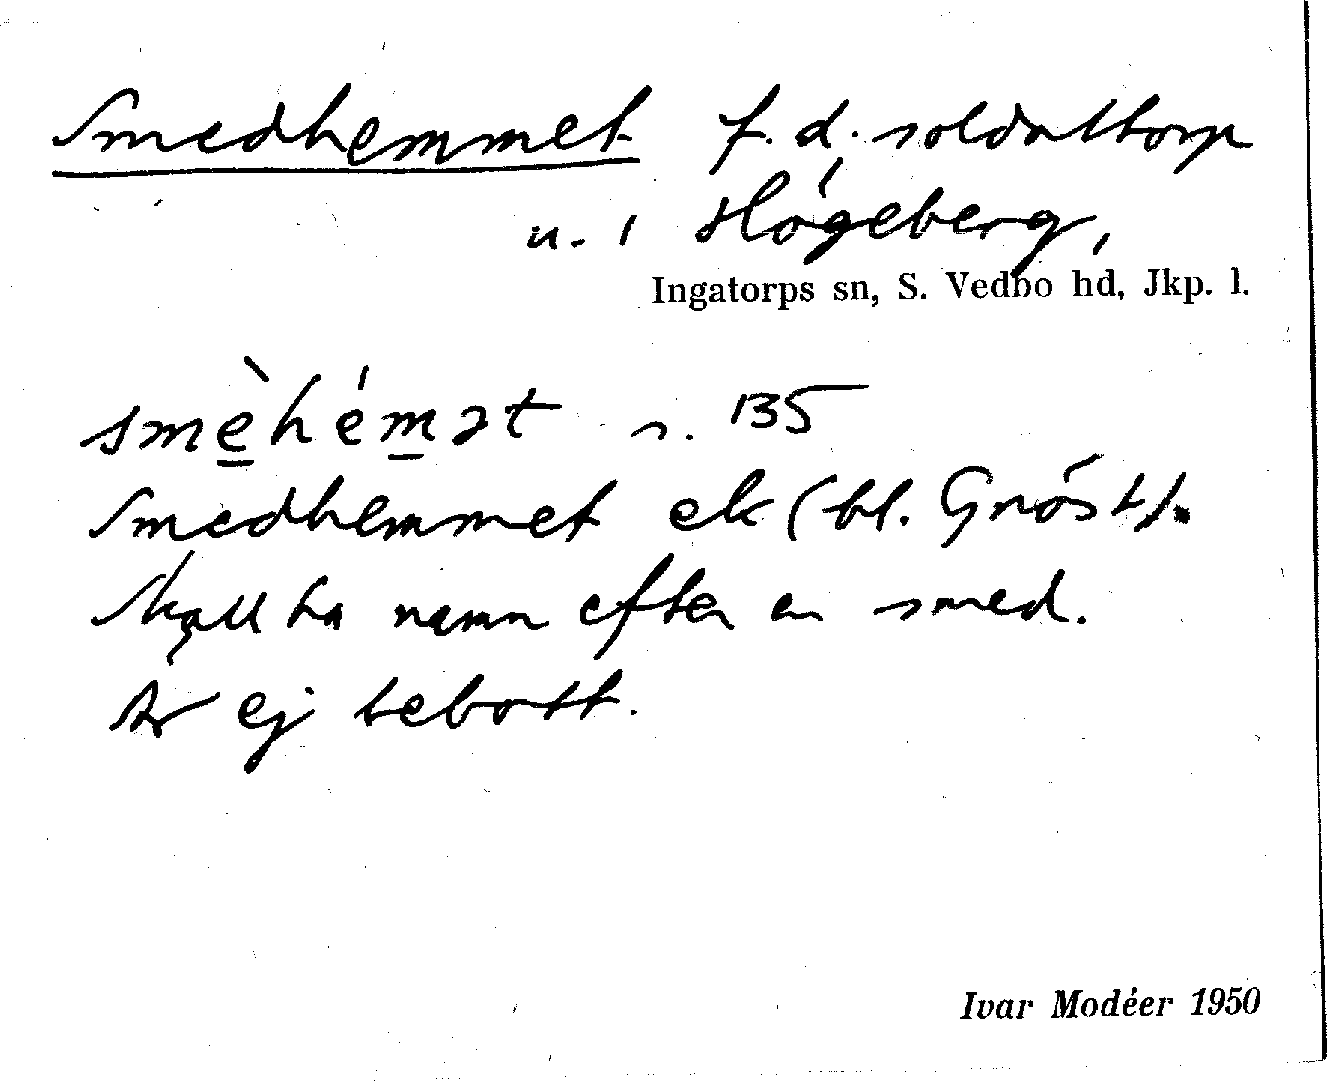 Smedhemmet f. d. soldattorp
u. 1 Högeberg,
Ingatorps sn, S. Vedbo hd, Jkp. l.
smèhémət s. 135
Smedhemmet ek (bl. Gnöst).
Skall ha namn efter en smed.
Är ej bebott.
Ivar Modéer 1950